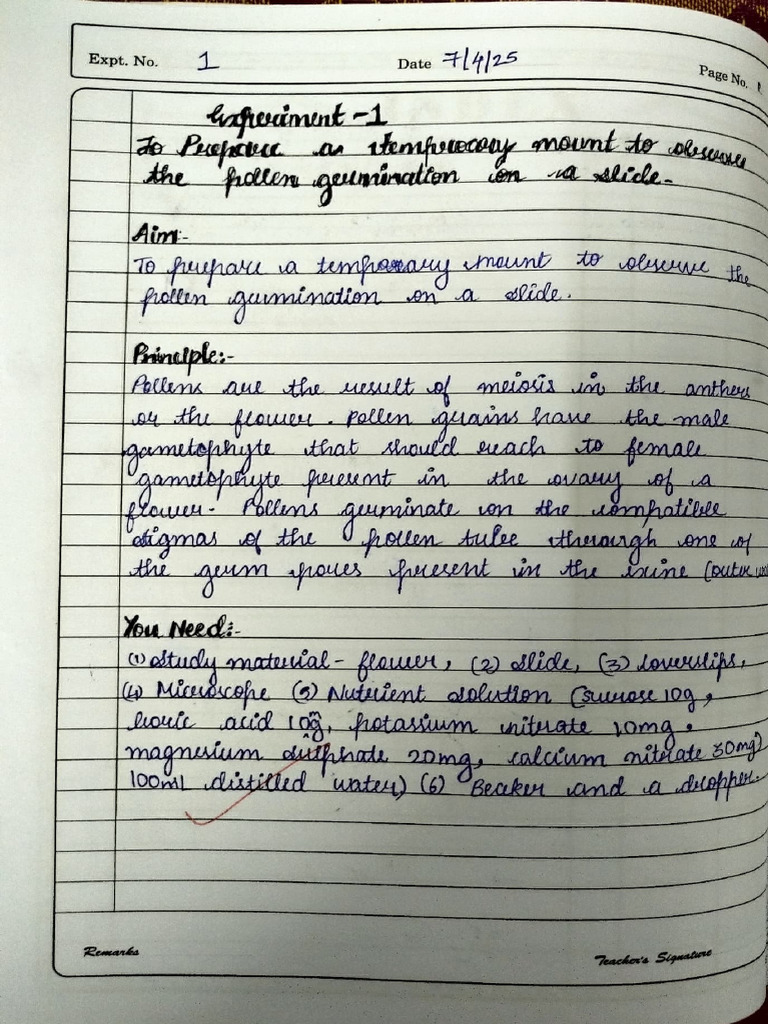 Expt. No. 1
Date 7/4/25
Page No. 1
Experiment -1
To Prepare a temprorary mount to observe
the pollen germination on a slide.
Aim:-
To prepare a temporary mount to observe the
pollen germination on a slide.
Principle:-
Pollens are the result of meiosis in the anthers
or the flower. Pollen grains have the male
gametophyte that should reach to female
gametophyte present in the ovary of a
flower. Pollens germinate on the compatible
stigmas of the pollen tube through one of
the germ pores present in the exine (outer
You Need:-
(1) Study material - flower, (2) slide, (3) coverslips,
(4) Microscope (5) Nutrient solution (sucrose 10g,
boric acid 10g, potassium nitrate 10mg,
magnesium sulphate 20mg, calcium nitrate 30mg)
100ml distilled water) (6) Beaker and a dropper.
Remarks
Teacher's Signature